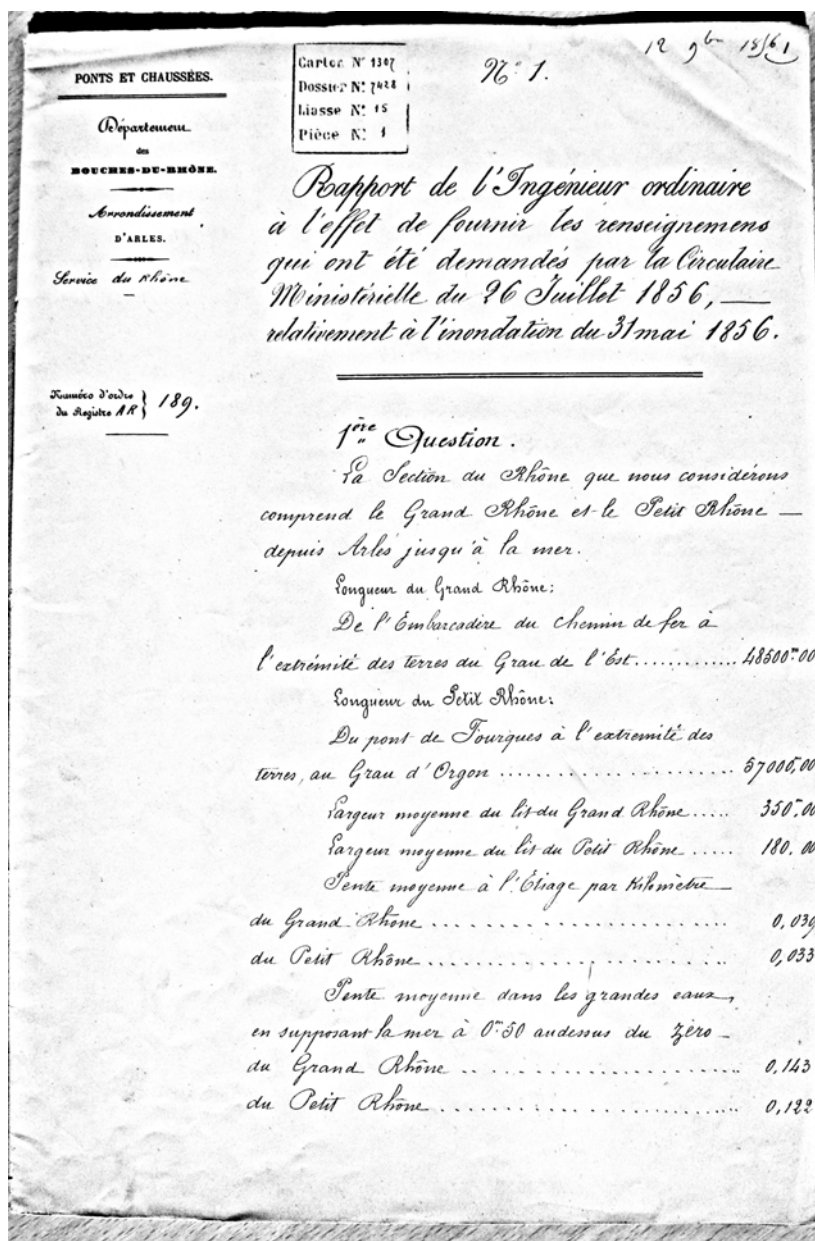 12 9bre 1856
PONTS ET CHAUSSÉES.
Département
des
BOUCHES-DU-RHÔNE.
Arrondissement
D'ARLES.
Service du Rhône
Numéro d'ordre
du Registre AR } 189.
Carton N° 1307
Dossier N° 7428
Liasse N° 15
Pièce N° 1
N° 1.
Rapport de l'Ingénieur ordinaire
à l'effet de fournir les renseignemens
qui ont été demandés par la Circulaire
Ministérielle du 26 Juillet 1856, —
relativement à l'inondation du 31 mai 1856.
1ère Question.
La Section du Rhône que nous considérons
comprend le Grand Rhône et le Petit Rhône —
depuis Arles jusqu'à la mer.
Longueur du Grand Rhône:
De l'Embarcadère du chemin de fer à
l'extrémité des terres du Grau de l'Est ............ 48500m00
Longueur du Petit Rhône:
Du pont de Fourques à l'extremité des
terres, au Grau d'Orgon .................... 57000,00
Largeur moyenne du lit du Grand Rhône ..... 350m00
Largeur moyenne du lit du Petit Rhône ..... 180.00
Pente moyenne à l'Étiage par Kilomètre —
du Grand Rhône .......................... 0,039
du Petit Rhône .......................... 0,033
Pente moyenne dans les grandes eaux,
en supposant la mer à 0m50 audessus du zéro —
du Grand Rhône .......................... 0,143
du Petit Rhône .......................... 0,122